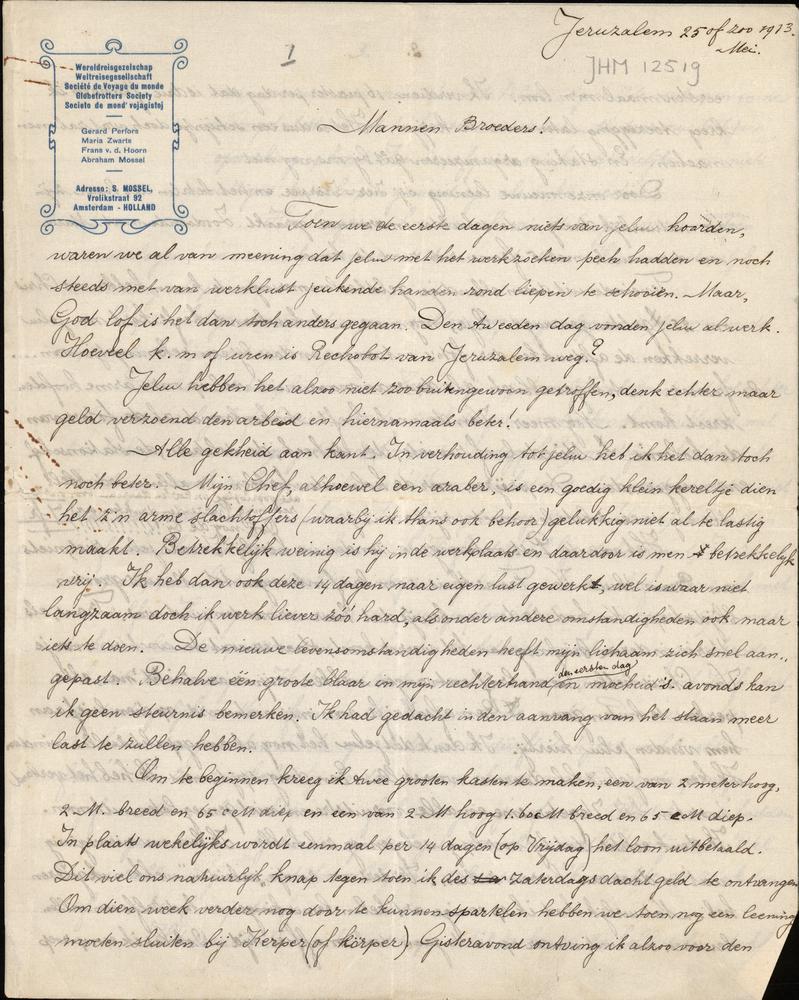 Jeruzalem 25 of zoo 1913.
Mei.
I
JHM 12519
Wereldreisgezelschap
Weltreisegesellschaft
Société de Voyage du monde
Globetrotters Society
Societo de mond' vojagistoj
Gerard Perfors
Maria Zwarts
Frans v. d. Hoorn
Abraham Mossel
Adresse: S. MOSSEL,
Vrolikstraat 92
Amsterdam - HOLLAND
Mannen Broeders!
Toen we de eerste dagen niets van jeluu hoorden,
waren we al van meening dat jeluu met het werkzoeken pech hadden en noch
steeds met van werklust jeukende handen rond liepen te schooien. Maar,
God lof is het dan toch anders gegaan. Den tweeden dag vonden jeluu al werk.
Hoeveel k.m of uren is Rechobot van Jeruzalem weg?
Jeluu hebben het alzoo niet zoo buitengewoon getroffen, denk echter maar
geld verzoend den arbeid en hiernamaals beter!
Alle gekheid aan kant. In verhouding tot jeluu heb ik het dan toch
noch beter. Mijn Chef, alhoewel een araber, is een goedig klein kereltje dien
het z'n arme slachtoffers (waarbij ik thans ook behoor) gelukkig niet al te lastig
maakt. Betrekkelijk weinig is hij in de werkplaats en daardoor is men betrekkelijk
vrij. Ik heb dan ook deze 14 dagen naar eigen lust gewerkt, wel is waar niet
langzaam doch ik werk liever zóó hard, als onder andere omstandigheden ook maar
iets te doen. De nieuwe levensomstandigheden heeft mijn lichaam zich snel aan-
gepast. Behalve één groote blaar in mijn rechterhand den eersten dag en moeheid 's avonds kan
ik geen steurnis bemerken. Ik had gedacht in den aanvang van het staan meer
last te zullen hebben.
Om te beginnen kreeg ik twee grooten kasten te maken, een van 2 meter hoog,
2 M. breed en 65 cM diep en een van 2 M hoog 1.60 cM breed en 65 cM diep.
In plaats wekelijks wordt eenmaal per 14 dagen (op Vrijdag) het loon uitbetaald.
Dit viel ons natuurlijk knap tegen toen ik des Zaterdags dacht geld te ontvangen
Om dien week verder nog door te kunnen spartelen hebben we toen nog een leening
moeten sluiten bij Kerper (of körper) Gisteravond ontving ik alzoo voor den